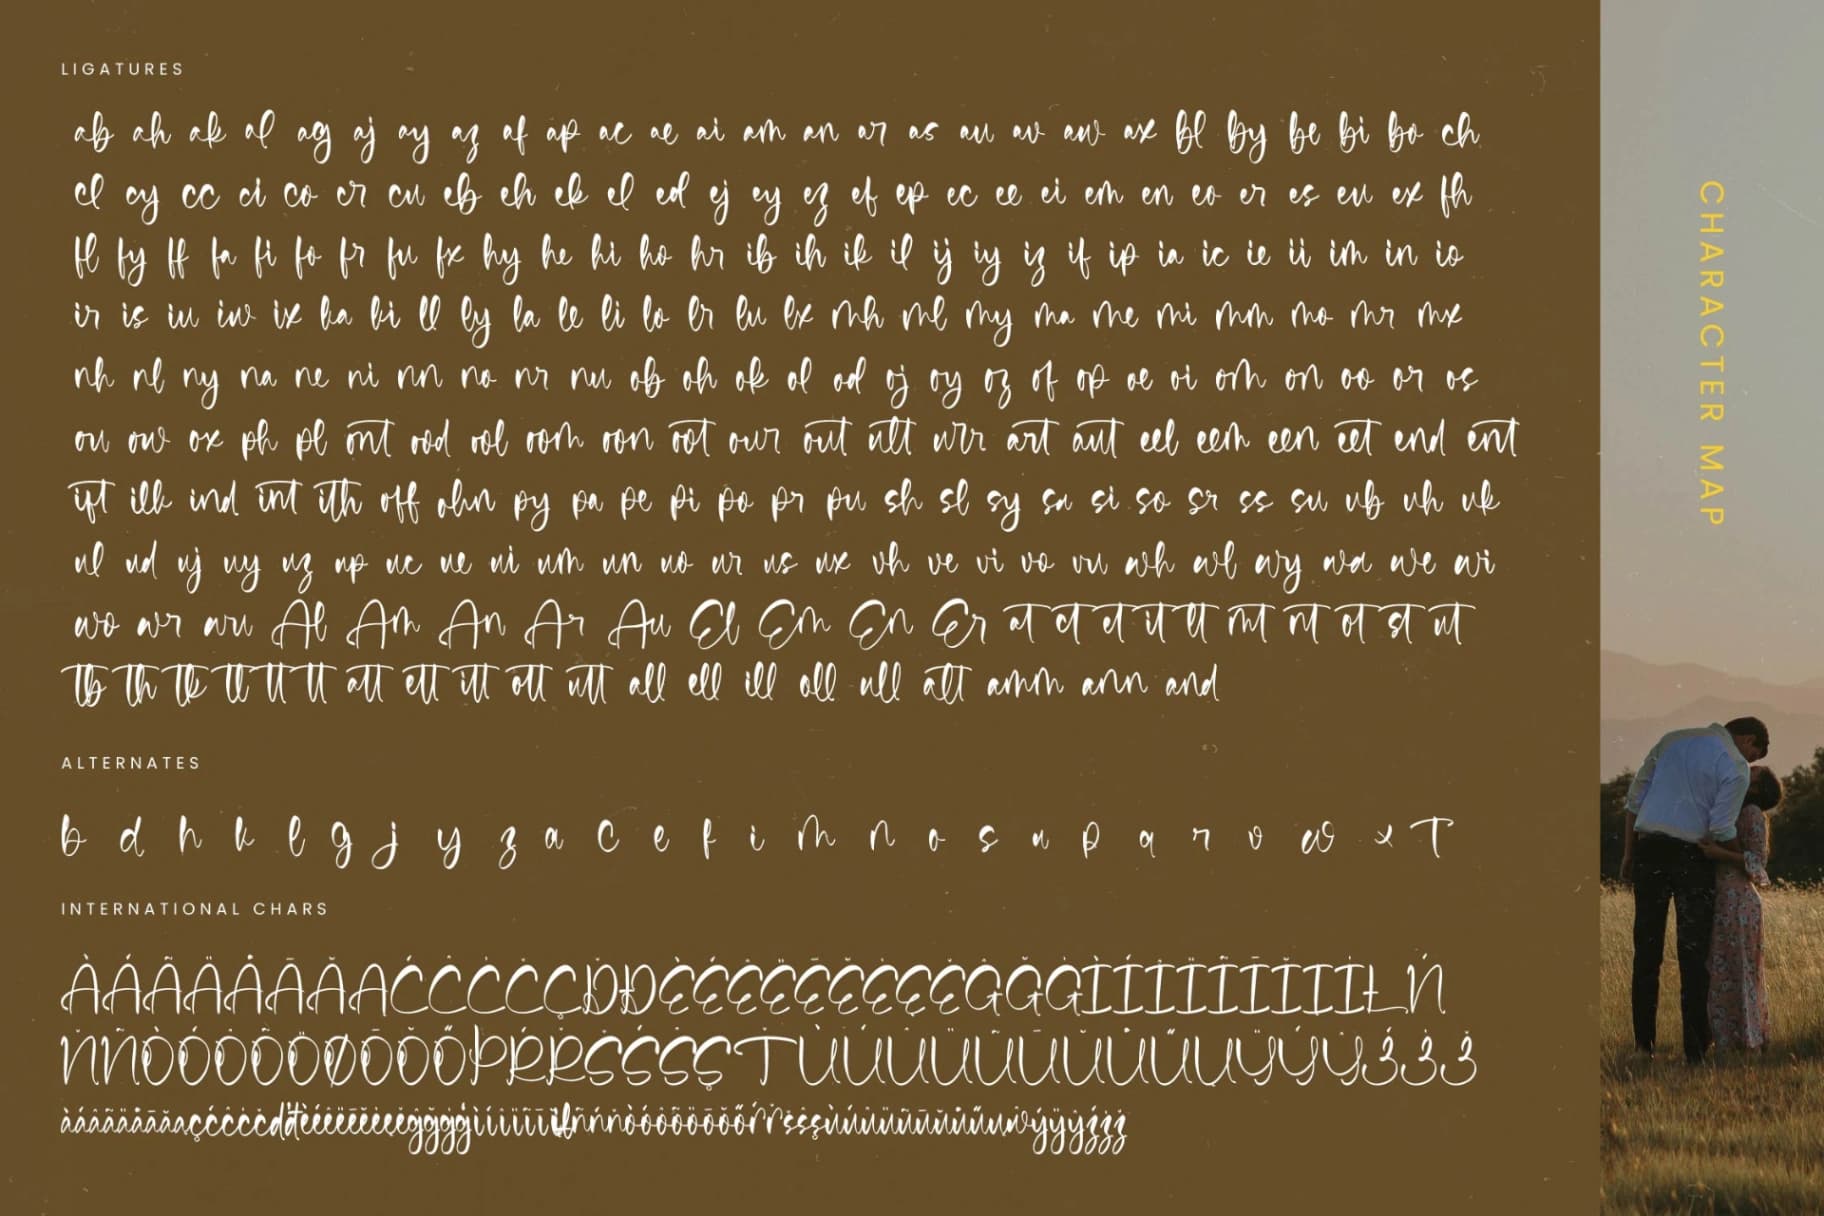 LIGATURES
ab ah ak al ag aj ay az af ap ac ae ai am an ar as au av aw ax bl by be bi bo ch
cl cy cc ci co cr cu eb eh ek el ed ej ey ez ef ep ec ee ei em en eo er es eu ex fh
fl fy ff fa fi fo fr fu fx hy he hi ho hr ib ih ik il ij iy iz if ip ia ic ie ii im in io
ir is iu iw ix ka ki ll ly la le li lo lr lu lx mh ml my ma me mi mm mo mr mx
nh nl ny na ne ni nn no nr nu ob oh ok ol od oj oy oz of op oe oi om on oo or os
ou ow ox ph pl ont ood ool oom oon oot our out ult urr art aut eel eem een eet end ent
ift ilk ind int ith off ohn py pa pe pi po pr pu sh sl sy sa si so sr ss su ub uh uk
ul ud uj uy uz up uc ue ui um un uo ur us ux vh ve vi vo vu wh wl wy wa we wi
wo wr wu Al Am An Ar Au El Em En Er at ct et it lt mt nt ot st ut
tb th tk tl tt tt att ett itt ott utt all ell ill oll ull alt amm ann and
ALTERNATES
b d h k l g j y z a c e f i m n o s u p q r v w x T
INTERNATIONAL CHARS
CHARACTER MAP